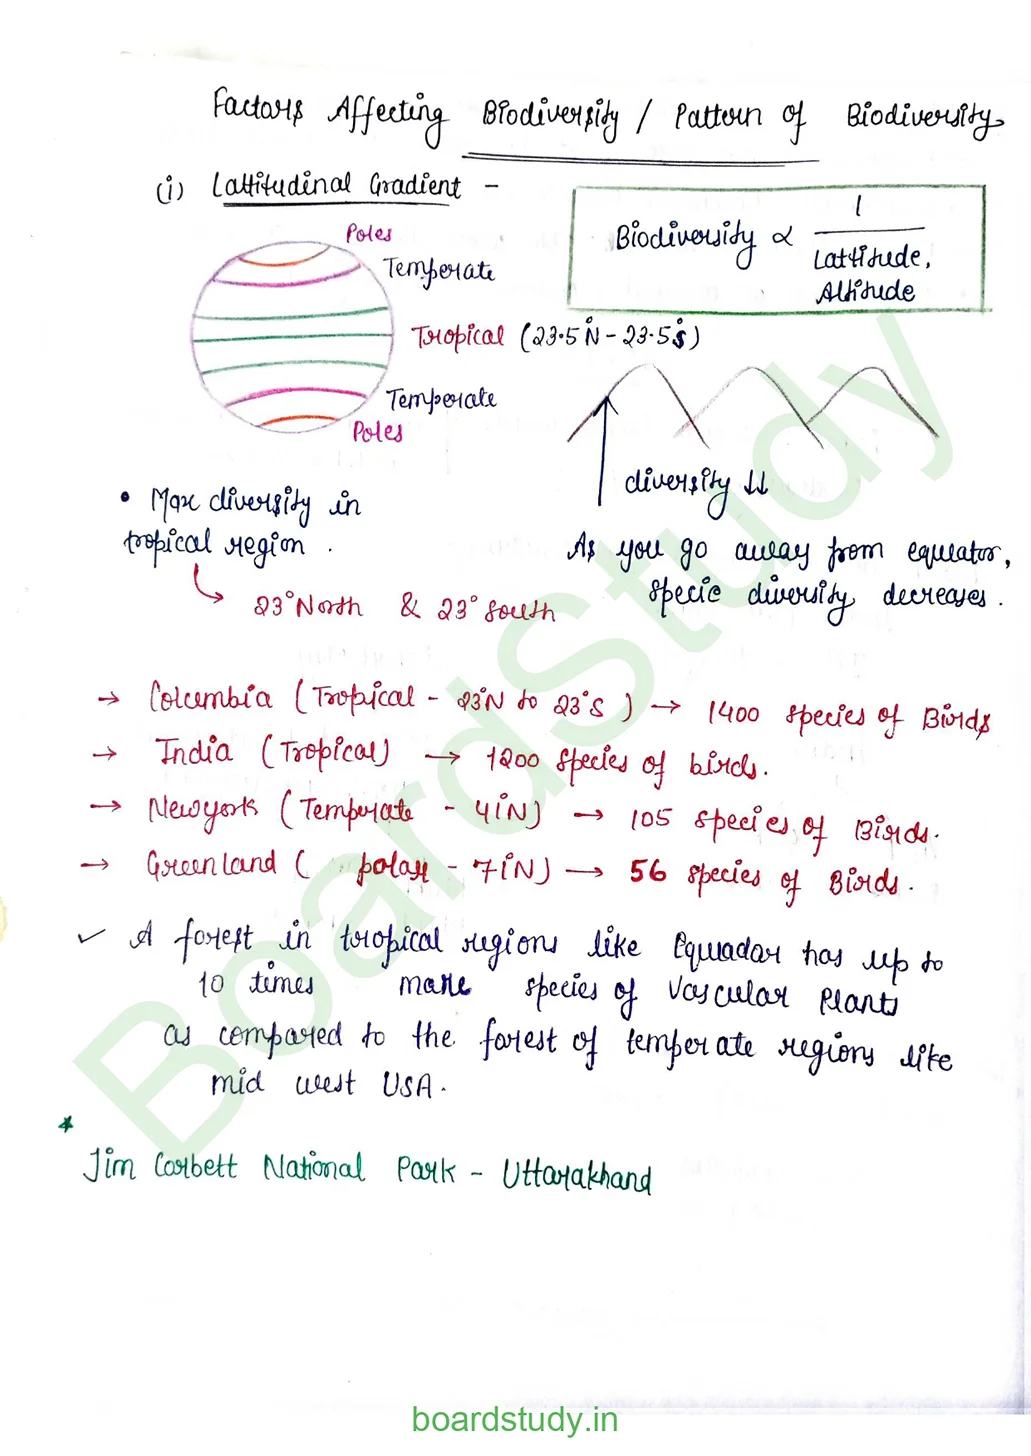 Factors Affecting Biodiversity / Pattern of Biodiversity
(i) Lattitudinal Gradient -
Biodiversity ∝ 1 / Lattitude, Altitude
Poles
Temperate
Tropical (23.5°N - 23.5°S)
Temperate
Poles
diversity ↓↓
• Max diversity in
tropical region.
23° North & 23° South
As you go away from equator,
specie diversity decreases.
→ Columbia (Tropical - 23°N to 23°S) → 1400 species of Birds
→ India (Tropical) → 1200 species of birds.
→ Newyork (Temperate - 41°N) → 105 species of Birds.
→ Greenland (polar - 71°N) → 56 species of Birds.
✓ A forest in tropical regions like Equador has up to
10 times more species of vascular plants
as compared to the forest of temperate regions like
mid west USA.
* Jim Corbett National Park - Uttarakhand
BoardStudy
boardstudy.in